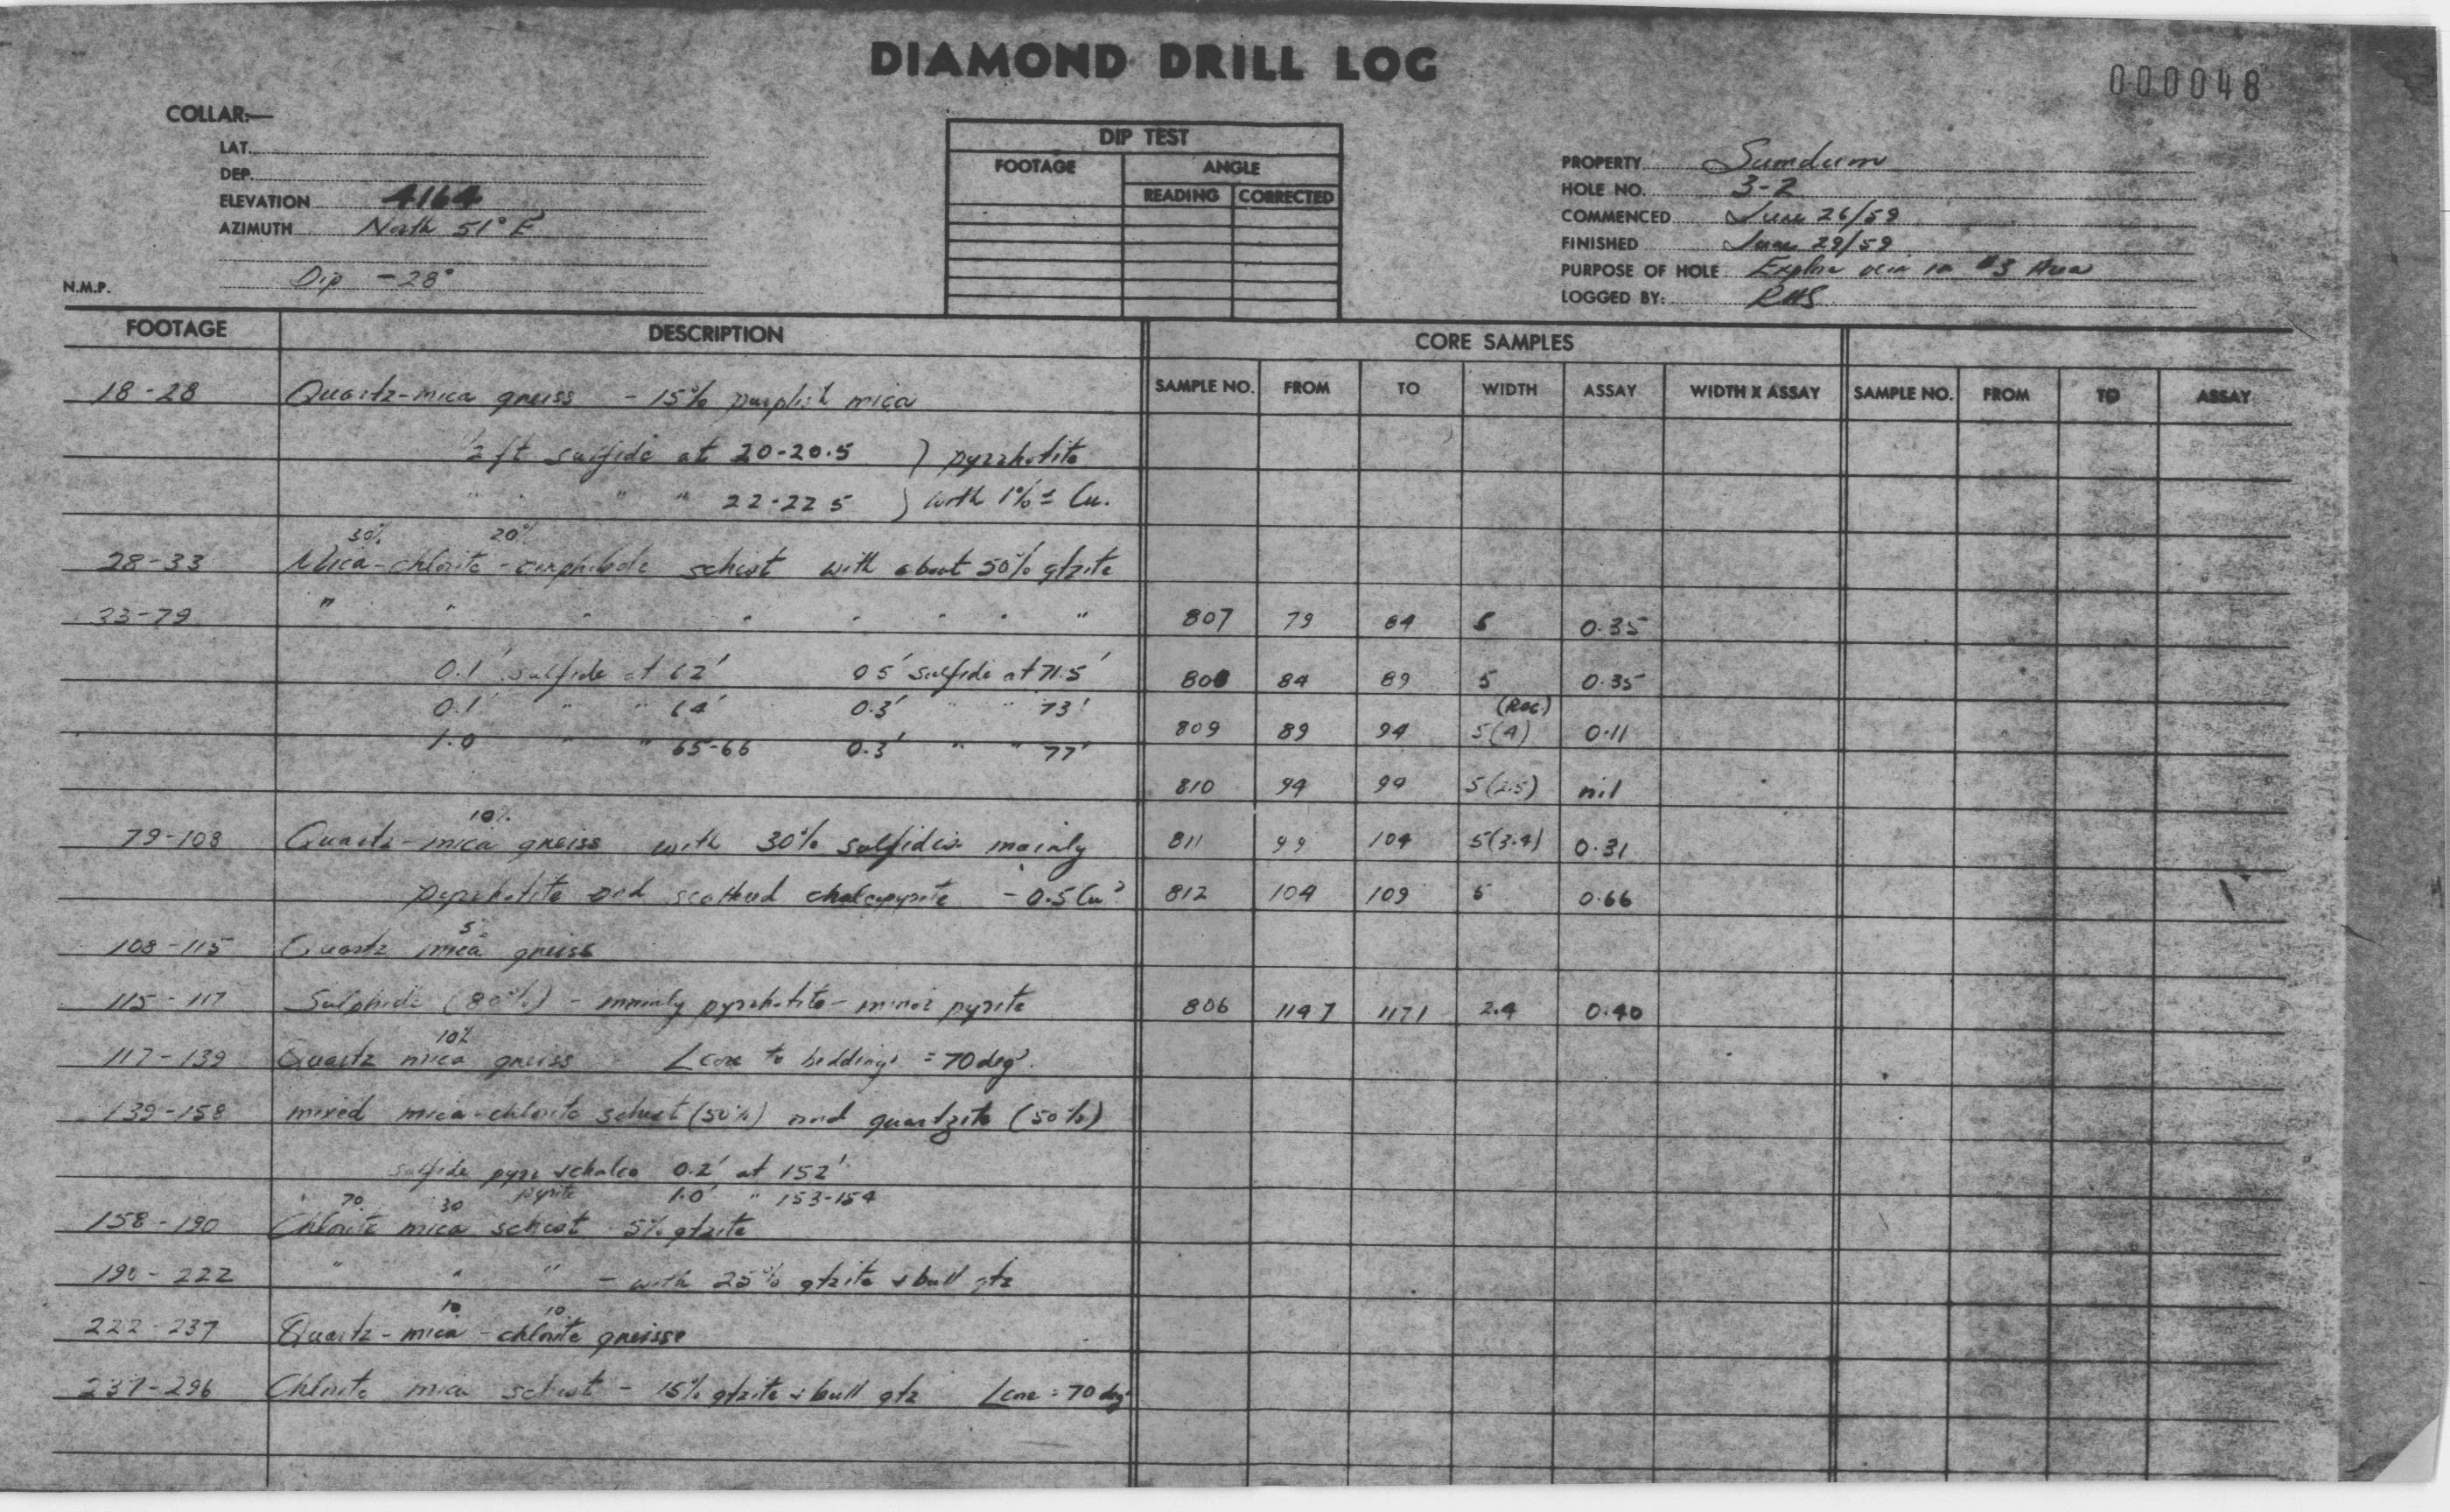 DIAMOND DRILL LOG
000048
COLLAR:—
LAT.
DEP.
ELEVATION 4164
AZIMUTH North 51° E
Dip -28°
N.M.P.
DIP TEST
FOOTAGE ANGLE
READING CORRECTED
PROPERTY Sumdum
HOLE NO. 3-2
COMMENCED June 26/59
FINISHED June 29/59
PURPOSE OF HOLE Explore vein in #3 Area
LOGGED BY: RHS
FOOTAGE DESCRIPTION CORE SAMPLES
SAMPLE NO. FROM TO WIDTH ASSAY WIDTH X ASSAY SAMPLE NO. FROM TO ASSAY
18-28 Quartz-mica gneiss - 15% purplish mica
1/2 ft sulfide at 20-20.5 ) pyrrhotite
" " " 22-22 5 ) with 1% ± Cu.
30% 20%
28-33 Mica-chlorite-amphibole schist with about 50% qtzite
33-79 " " " " " " " " 807 79 84 5 0.35
0.1' sulfide at 62' 0 5' sulfide at 71.5' 808 84 89 5 0.35
0.1' " " 64' 0.3' " " 73'
(Rec.)
809 89 94 5(4) 0.11
1.0 " " 65-66 0.3' " " 77'
810 94 99 5(2.5) nil
10%
79-108 Quartz-mica gneiss with 30% sulfides mainly 811 99 104 5(3.4) 0.31
pyrrhotite and scattered chalcopyrite - 0.5 Cu? 812 104 109 5 0.66
5%
108-115 Quartz mica gneiss
115-117 Sulphide (80%) - mainly pyrrhotite - minor pyrite 806 1147 1171 2.4 0.40
10%
117-139 Quartz mica gneiss - ∠ core to bedding = 70 deg.
139-158 mixed mica-chlorite schist (50%) and quartzite (50%)
sulfide pyrr & chalco 0.2' at 152'
pyrite 1.0' " 153-154
70 30
158-190 Chlorite mica schist - 5% qtzite
190-222 " " " - with 25% qtzite & bull qtz
10 10
222-237 Quartz-mica-chlorite gneiss
237-296 Chlorite mica schist - 15% qtzite & bull qtz ∠ core = 70 deg